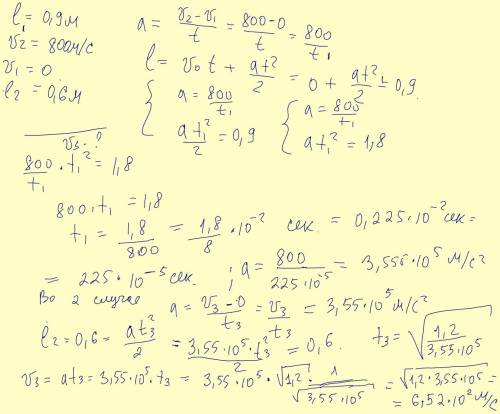 l₁ = 0,9 м
v₂ = 800 м/с
v₁ = 0.
l₂ = 0,6 м
v₃ - ?
a = (v₂ - v₁)/t = (800-0)/t = 800/t₁
l = v₀t + at²/2 = 0 + at₁²/2 = 0,9.
{ a = 800/t₁
at₁²/2 = 0,9
{ a = 800/t₁
at₁² = 1,8
800/t₁ · t₁² = 1,8
800 · t₁ = 1,8
t₁ = 1,8/800 = 1,8/8 · 10⁻² сек. = 0,225·10⁻² сек =
= 225 · 10⁻⁵ сек. ; a = 800/(225·10⁻⁵) = 3,556·10⁵ м/с²
Во 2 случае a = (v₃ - 0)/t₃ = v₃/t₃ = 3,55·10⁵ м/с²
l₂ = 0,6 = at₃²/2 = 3,55·10⁵·t₃²/2 = 0,6. t₃ = √(1,2/(3,55·10⁵))
v₃ = at₃ = 3,55·10⁵·t₃ = 3,55·10⁵·√1,2 · 1/√(3,55·10⁵) = √(1,2·3,55·10⁵) =
= 6,52·10² м/с